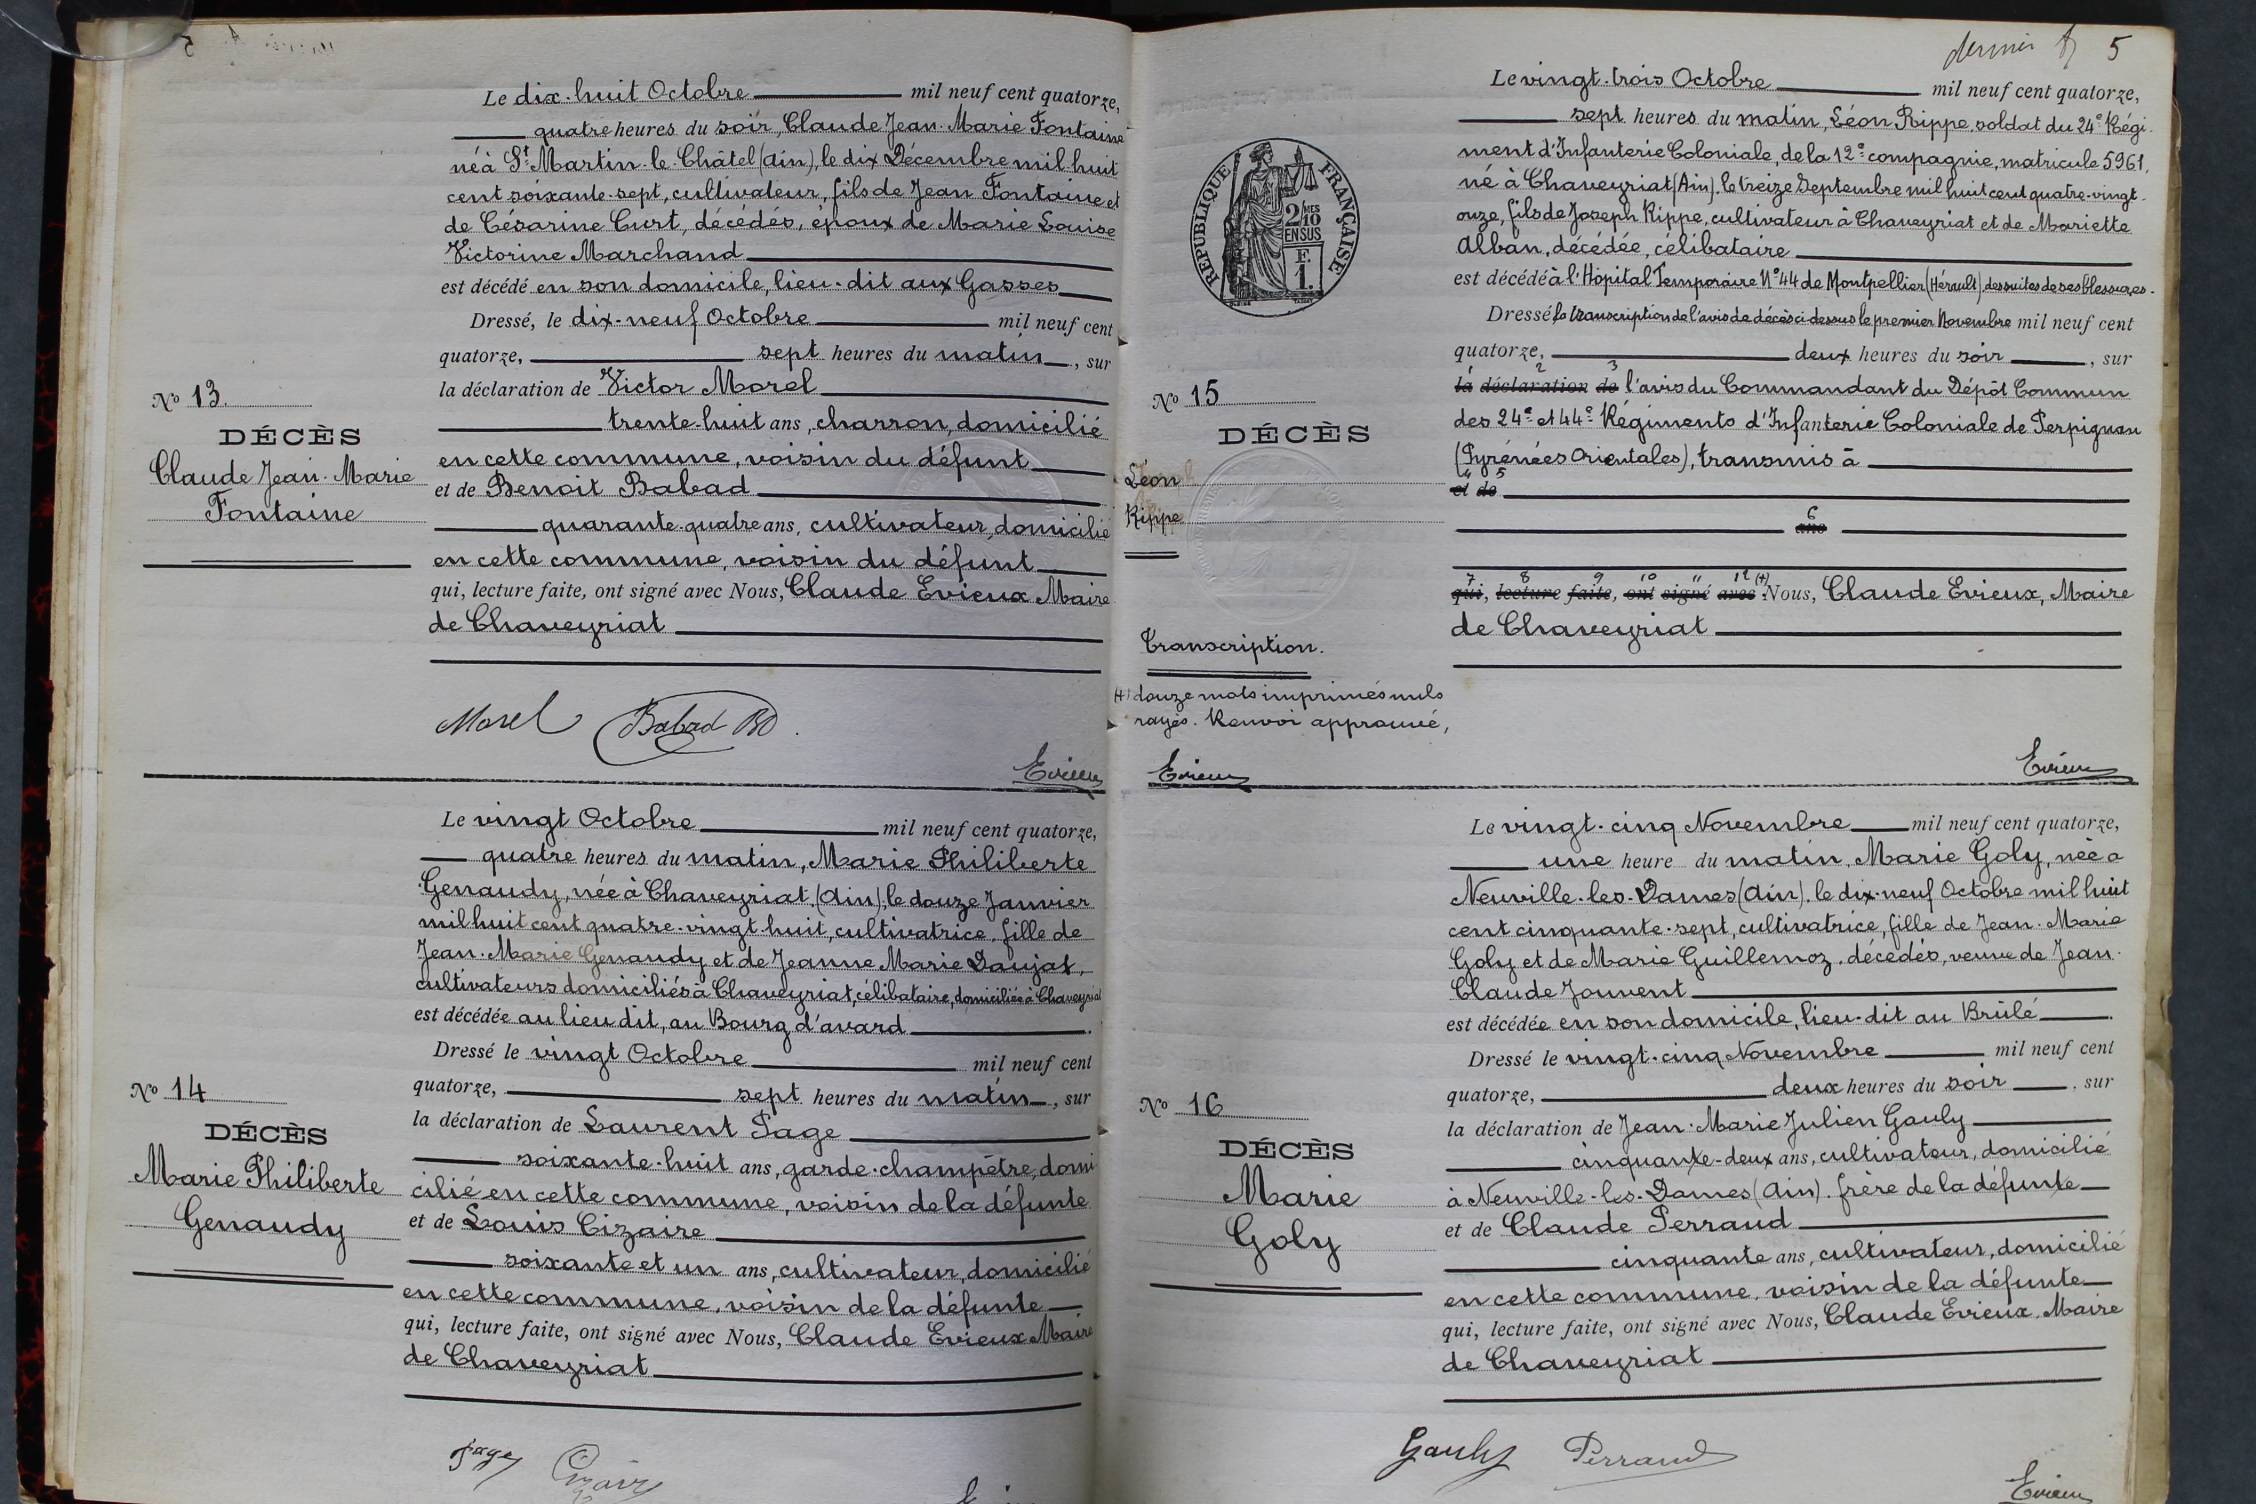 Le dix-huit Octobre mil neuf cent quatorze,
quatre heures du soir, Claude Jean-Marie Fontaine
né à St Martin-le-Châtel (Ain), le dix Décembre mil huit
cent soixante-sept, cultivateur, fils de Jean Fontaine et
de Césarine Curt, décédés, époux de Marie Louise
Victorine Marchand
est décédé en son domicile, lieu-dit aux Gasses
Dressé, le dix-neuf Octobre mil neuf cent
quatorze, sept heures du matin, sur
la déclaration de Victor Morel
trente-huit ans, charron, domicilié
en cette commune, voisin du défunt
et de Benoit Babad
quarante-quatre ans, cultivateur, domicilié
en cette commune, voisin du défunt
qui, lecture faite, ont signé avec Nous, Claude Evieux Maire
de Chaveyriat
No 13.
DÉCÈS
Claude Jean-Marie
Fontaine
Morel Babad
Evieux
Le vingt Octobre mil neuf cent quatorze,
quatre heures du matin, Marie Philiberte
Genaudy, née à Chaveyriat (Ain), le douze Janvier
mil huit cent quatre-vingt huit, cultivatrice, fille de
Jean-Marie Genaudy et de Jeanne Marie Daujat,
cultivateurs domiciliés à Chaveyriat, célibataire, domiciliée à Chaveyriat
est décédée au lieu dit, au Bourg d'avard.
Dressé le vingt Octobre mil neuf cent
quatorze, sept heures du matin, sur
la déclaration de Laurent Page
soixante-huit ans, garde-champêtre, domi
cilié en cette commune, voisin de la défunte
et de Louis Cizaire
soixante et un ans, cultivateur, domicilié
en cette commune, voisin de la défunte
qui, lecture faite, ont signé avec Nous, Claude Evieux Maire
de Chaveyriat
No 14
DÉCÈS
Marie Philiberte
Genaudy
Page Cizaire
dernier 5
Le vingt-trois Octobre mil neuf cent quatorze,
sept heures du matin, Léon Rippe, soldat du 24e Régi-
ment d'Infanterie Coloniale, de la 12e compagnie, matricule 5961,
né à Chaveyriat (Ain), le treize Septembre mil huit cent quatre-vingt-
onze, fils de Joseph Rippe, cultivateur à Chaveyriat et de Mariette
Alban, décédée, célibataire
est décédé à l'Hôpital Temporaire No 44 de Montpellier (Hérault), des suites de ses blessures.
Dressé la transcription de l'avis de décès ci-dessus le premier Novembre mil neuf cent
quatorze, deux heures du soir, sur
1 2 3
la déclaration de l'avis du Commandant du Dépôt Commun
des 24e et 44e Régiments d'Infanterie Coloniale de Perpignan
(Pyrénées Orientales), transmis à
4 5
et de
6
ans
7 8 9 10 11 12 (+)
qui, lecture faite, ont signé avec Nous, Claude Evieux, Maire
de Chaveyriat
RÉPUBLIQUE FRANÇAISE
2/10 MES
EN SUS
F.
1.
No 15
DÉCÈS
Léon
Rippe
Transcription.
(+) douze mots imprimés nuls
rayés. Renvoi approuvé,
Evieux
Evieux
Le vingt-cinq Novembre mil neuf cent quatorze,
une heure du matin, Marie Goly, née à
Neuville-les-Dames (Ain), le dix-neuf Octobre mil huit
cent cinquante-sept, cultivatrice, fille de Jean-Marie
Goly et de Marie Guillemoz, décédés, veuve de Jean-
Claude Jouvent
est décédée en son domicile, lieu-dit au Brûlé.
Dressé le vingt-cinq Novembre mil neuf cent
quatorze, deux heures du soir, sur
la déclaration de Jean-Marie Julien Gauly
cinquante-deux ans, cultivateur, domicilié
à Neuville-les-Dames (Ain), frère de la défunte
et de Claude Perraud
cinquante ans, cultivateur, domicilié
en cette commune, voisin de la défunte
qui, lecture faite, ont signé avec Nous, Claude Evieux, Maire
de Chaveyriat
No 16
DÉCÈS
Marie
Goly
Gauly Perraud
Evieux